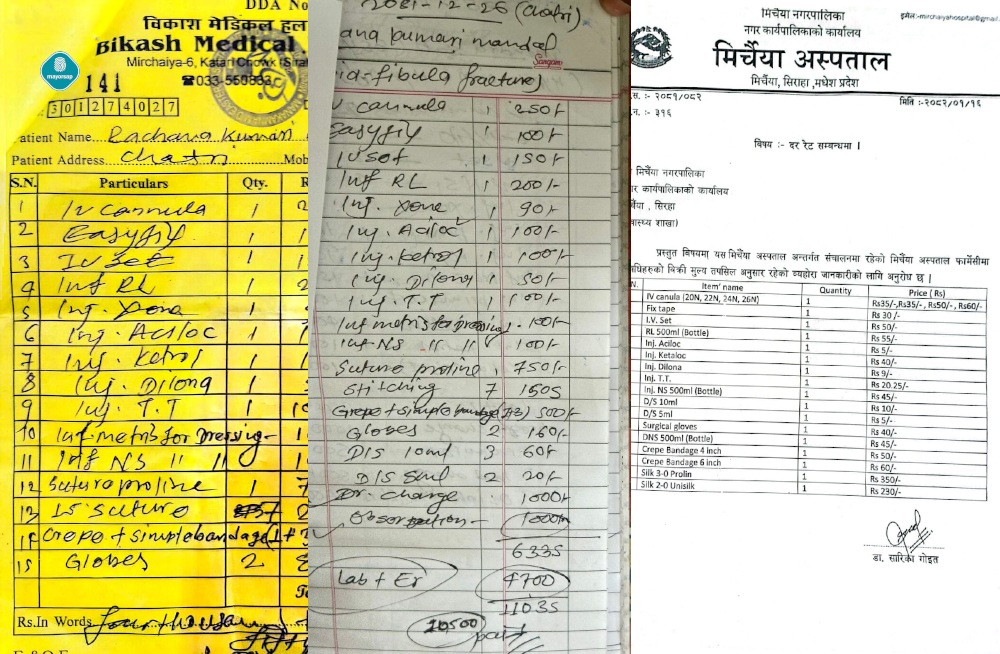 DDA No
विकाश मेडिकल हल
Bikash Medical
Mirchaiya-6, Katari Chowk, Sirah
☎033-550883
mayorsap
141
301274027
atient Name.. Rachana Kumari
Patient Address.. Chatri Mob
S.N. Particulars Qty. R
1 IV cannula 1 2
2 Easyfix 1 1
3 IV set 1 1
4 Inf RL 1 2
5 Inj. Xone 1
6 Inj. Aciloc 1 1
7 Inj. Ketrol 1 1
8 Inj. Dilona 1 5
9 Inj. T.T 1 10
10 Inf-metris for Dressing- 1
11 Inf NS " " 1
12 Sutura proline 1 7
13 Is suture
15 Globes 2 8
Rs.In Words
E. & O.E.
2081-12-26 (chatri)
ana kumari mandal
Sangam
ia-fibula fracture)
IV cannula 1 250/-
Easyfix 1 100/-
IV set 1 150/-
Inf RL 1 200/-
Inj. Xone 1 90/-
Inj. Aciloc 1 100/-
Inj. Ketrol 1 100/-
Inj. Dilona 1 50/-
Inj. T.T 1 100/-
Inf metris for pressing. 100/-
Inf NS " " 100/-
Suture proline 1 750/-
Stitching 7 1505
Crepe + simple bandage (1+3) 500/-
Globes 2 160/-
D/S 10ml 3 60/-
D/S 5ml 2 20/-
Dr. charge 1000/-
Obserbution - 1000/-
6335
Lab + Er 4700
11035
10500
paid
मिर्चैया नगरपालिका
नगर कार्यपालिकाको कार्यालय
इमेल:-mirchaiyahospital@gmail.
मिर्चैया अस्पताल
मिर्चैया, सिराहा ,मधेश प्रदेश
.स. :- २०८१/०८२
मिति :-२०८२/०१/१६
.न. :- ३१६
विषय :- दर रेट सम्बन्धमा ।
मिर्चैया नगरपालिका
गर कार्यपालिकाको कार्यालय
र्चैया , सिरहा
वास्थ्य शाखा)
प्रस्तुत बिषयमा यस मिर्चैया अस्पताल अन्तर्गत संचालनमा रहेको मिर्चैया अस्पताल फार्मेसीमा
षधिहरुको बिक्री मुल्य तपसिल अनुसार रहेको व्यहोरा जानकारीको लागि अनुरोध छ ।
N. Item' name Quantity Price ( Rs)
IV canula (20N, 22N, 24N, 26N) 1 Rs35/-,Rs35/- , Rs50/-, Rs60/-
Fix tape 1 Rs 30 /-
I.V. Set 1 Rs 50/-
RL 500ml (Bottle) 1 Rs 55/-
Inj. Aciloc 1 Rs 5/-
Inj. Ketaloc 1 Rs 40/-
Inj. Dilona 1 Rs 9/-
Inj. T.T. 1 Rs 20.25/-
Inj. NS 500ml (Bottle) 1 Rs 45/-
D/S 10ml 1 Rs 10/-
D/S 5ml 1 Rs 5/-
Surgical gloves 1 Rs 40/-
DNS 500ml (Bottle) 1 Rs 45/-
Crepe Bandage 4 inch 1 Rs 50/-
Crepe Bandage 6 inch 1 Rs 60/-
Silk 3-0 Prolin 1 Rs 350/-
Silk 2-0 Unisilk 1 Rs 230/-
डा. सारिका गोइत